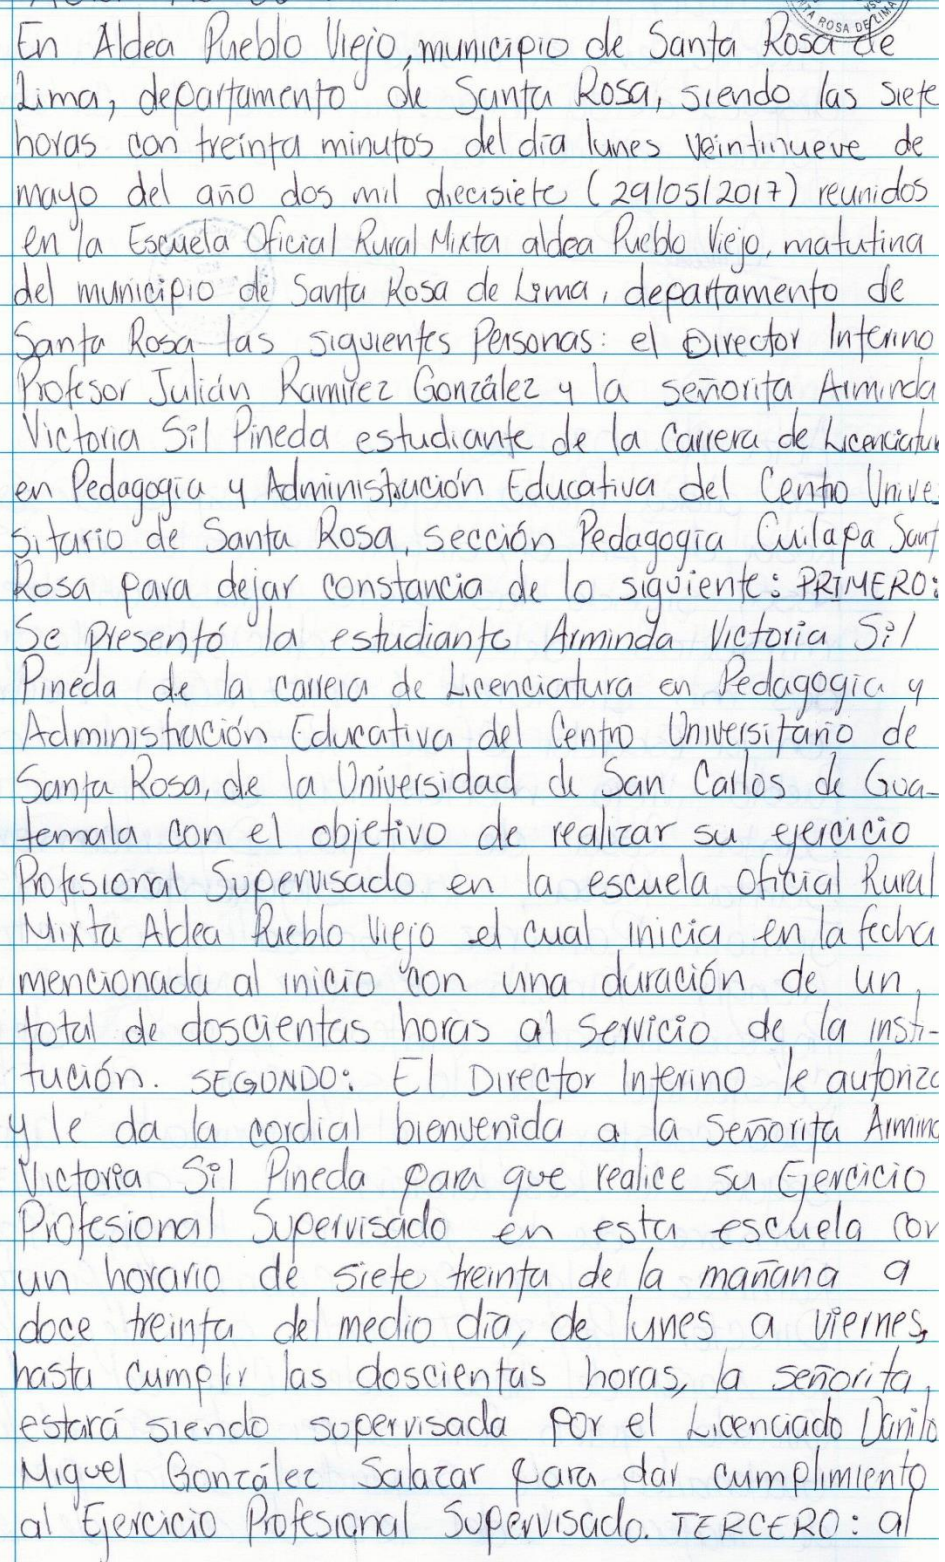 TA ROSA DE LIMA
En Aldea Pueblo Viejo, municipio de Santa Rosa de
Lima, departamento de Santa Rosa, siendo las siete
horas con treinta minutos del día lunes veintinueve de
mayo del año dos mil diecisiete (29/05/2017) reunidos
en la Escuela Oficial Rural Mixta aldea Pueblo Viejo, matutina
del municipio de Santa Rosa de Lima, departamento de
Santa Rosa las siguientes Personas: el Director Interino
Profesor Julián Ramírez González y la señorita Arminda
Victoria Sil Pineda estudiante de la Carrera de Licenciatur
en Pedagogía y Administración Educativa del Centro Unive
sitario de Santa Rosa, sección Pedagogía Cuilapa Sant
Rosa para dejar constancia de lo siguiente: PRIMERO:
Se presentó la estudiante Arminda Victoria Sil
Pineda de la carrera de Licenciatura en Pedagogía y
Administración Educativa del Centro Universitario de
Santa Rosa, de la Universidad de San Carlos de Gua-
temala con el objetivo de realizar su ejercicio
Profesional Supervisado en la escuela Oficial Rural
Mixta Aldea Pueblo Viejo el cual inicia en la fecha
mencionada al inicio con una duración de un
total de doscientas horas al servicio de la insti-
tución. SEGUNDO: El Director Interino le autoriza
y le da la cordial bienvenida a la Señorita Armind
Victoria Sil Pineda para que realice su Ejercicio
Profesional Supervisado en esta escuela con
un horario de siete treinta de la mañana a
doce treinta del medio día, de lunes a viernes,
hasta cumplir las doscientas horas, la señorita,
estará siendo supervisada por el Licenciado Danilo
Miguel González Salazar para dar cumplimiento
al Ejercicio Profesional Supervisado. TERCERO: al